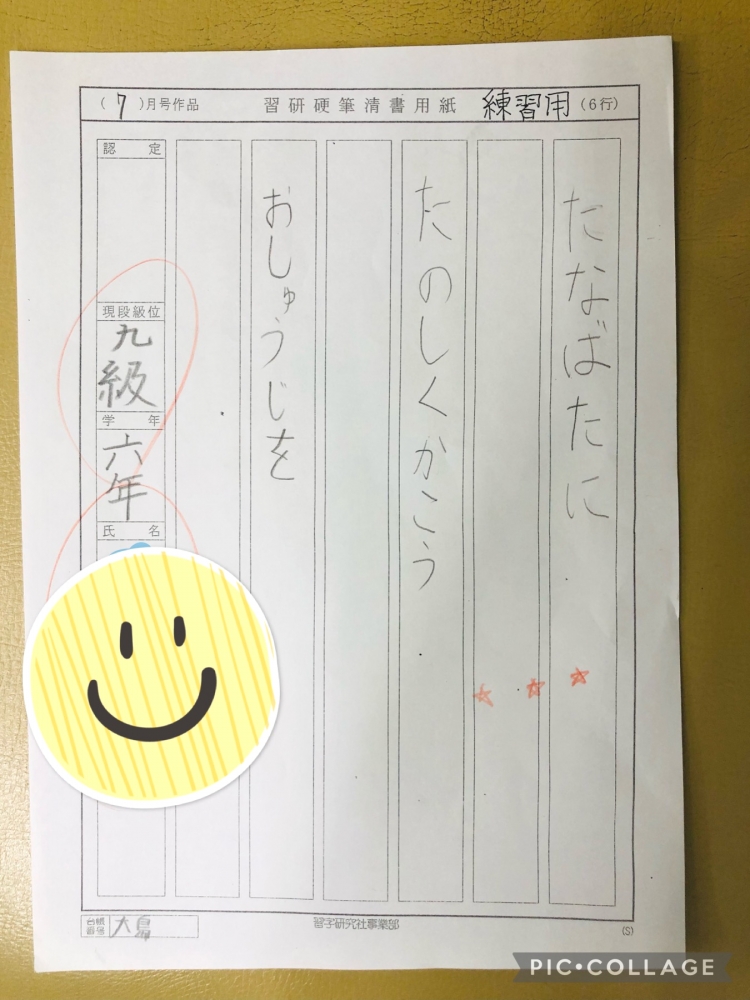 (7)月号作品 習研硬筆清書用紙 練習用 (6行)
たなばたに
たのしくかこう
おしゅうじを
認定
現段級位
九級
学年
六年
氏名
台帳番号 大鳥
習字研究社事業部
(S)
PIC•COLLAGE